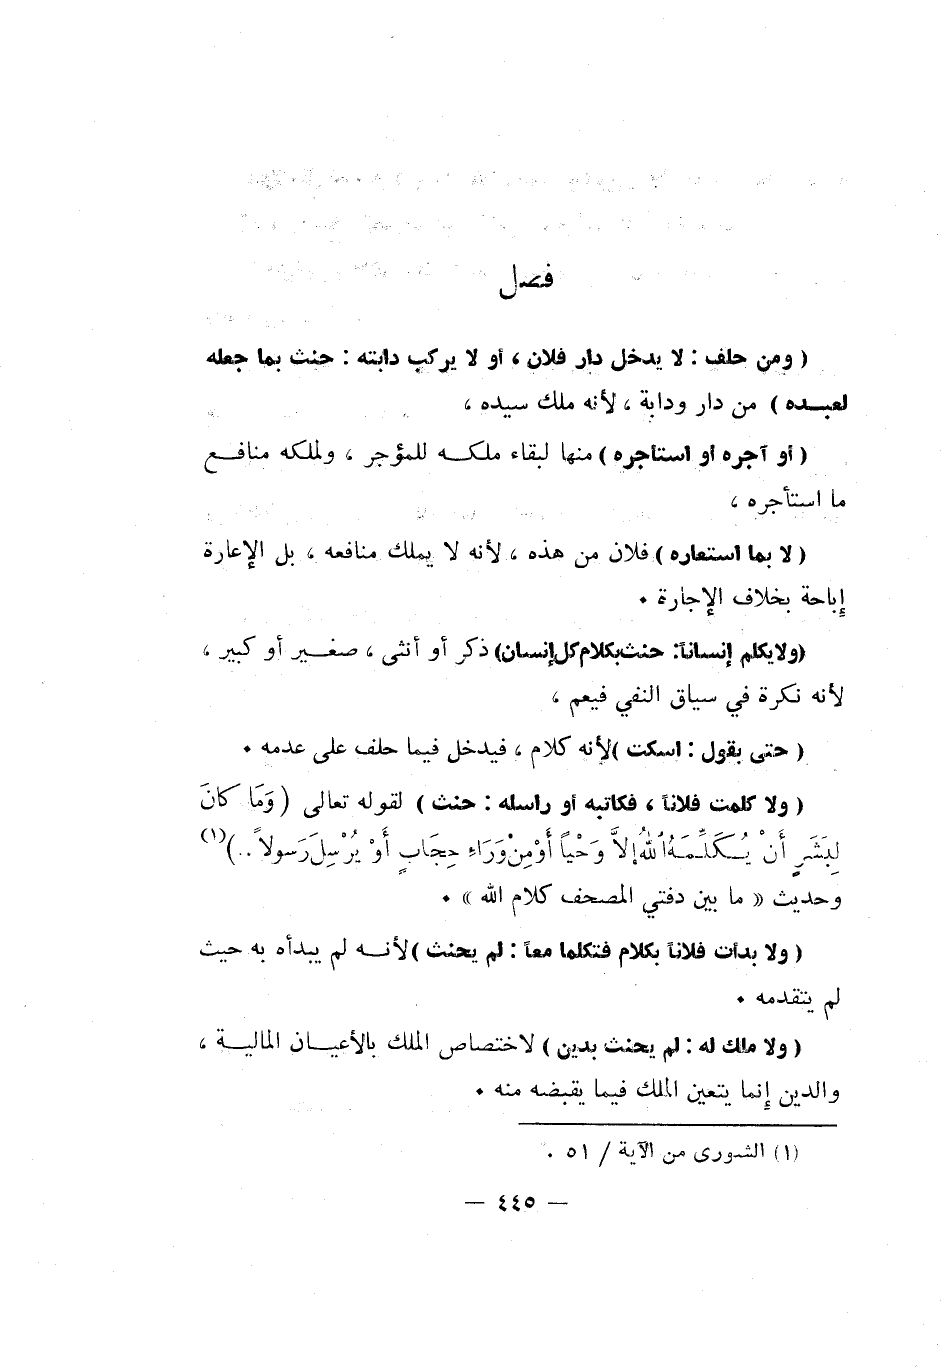 فصل
( ومن حلف : لا يدخل دار فلان ، أو لا يركب دابته : حنث بما جعله
لعبده ) من دار ودابة ، لأنه ملك سيده ،
( أو آجره أو استأجره ) منها لبقاء ملكه للمؤجر ، ولملكه منافع
ما استأجره ،
( لا بما استعاره ) فلان من هذه ، لأنه لا يملك منافعه ، بل الإعارة
إباحة بخلاف الإجارة .
(ولا يكلم إنساناً: حنث بكلام كل إنسان) ذكر أو أنثى ، صغير أو كبير ،
لأنه نكرة في سياق النفي فيعم ،
( حتى بقول : اسكت ) لأنه كلام ، فيدخل فيما حلف على عدمه .
( ولا كلمت فلاناً ، فكاتبه أو راسله : حنث ) لقوله تعالى ( وَمَا كَانَ
لِبَشَرٍ أَنْ يُكَلِّمَهُ اللهُ إلاَّ وَحْياً أَوْ مِنْ وَرَاءِ حِجَابٍ أَوْ يُرْسِلَ رَسولاً ..)(١)
وحديث « ما بين دفتي المصحف كلام الله » .
( ولا بدأت فلاناً بكلام فتكلما معاً : لم يحنث ) لأنه لم يبدأه به حيث
لم يتقدمه .
( ولا ملك له : لم يحنث بدين ) لاختصاص الملك بالأعيان المالية ،
والدين إنما يتعين الملك فيما يقبضه منه .
(١) الشورى من الآية / ٥١ .
— ٤٤٥ —